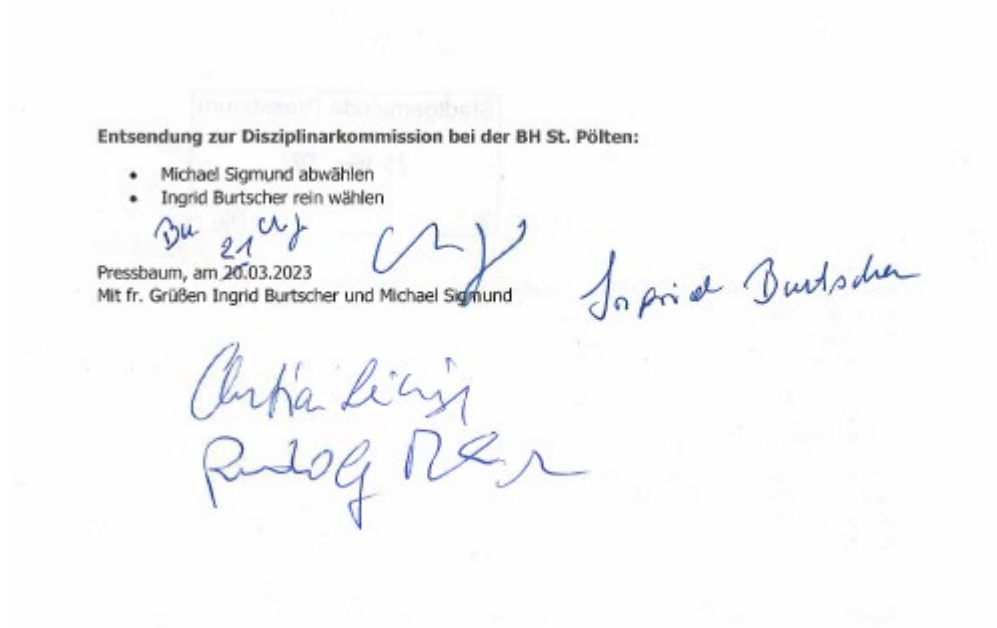 Entsendung zur Disziplinarkommission bei der BH St. Pölten:
• Michael Sigmund abwählen
• Ingrid Burtscher rein wählen
Bu
21
Pressbaum, am 20.03.2023
Mit fr. Grüßen Ingrid Burtscher und Michael Sigmund
Ingrid Burtscher
Christian
Rudolf